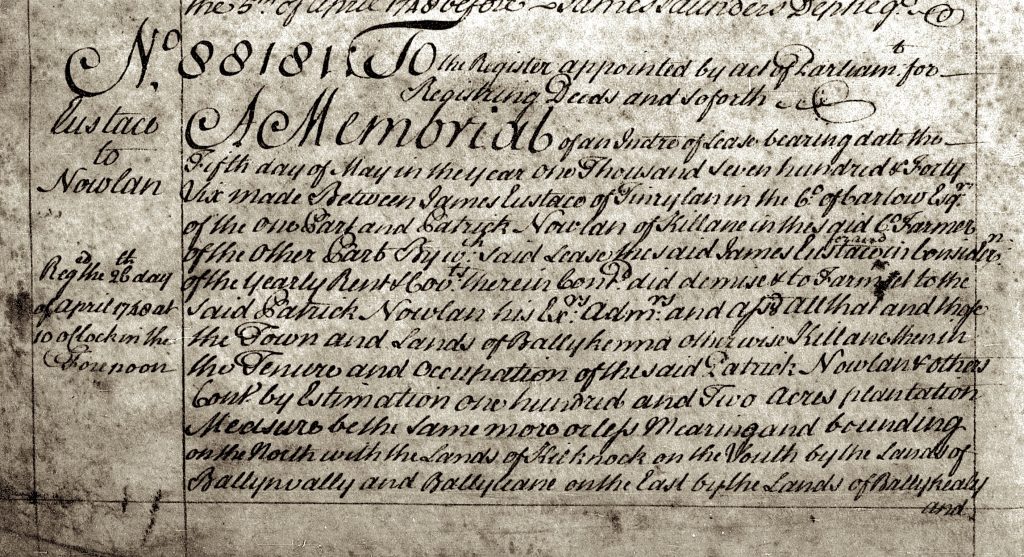 the 5th of April 1748 before James Saunders Dep Regr
No. 88181: To the Register appointed by act of Parliamt. for
Registring Deeds and soforth
Eustace
to
Nowlan
A Memorial of an Indre of Lease bearing date the
Fifth day of May in the year one Thousand seven hundred & Forty
Six made Between James Eustace of Tinrylan in the Co. of Carlow Esqr.
of the one Part and Patrick Nowlan of Killane in the said Co. Farmer
of the Other Part By wch. said Lease the said James Eustace in Considern.
of the yearly Rent & Covts. therein Contd. did demise & to Farm let to the
said Patrick Nowlan his Exrs. Admrs. and Asss. all that and those
the Town and Lands of Ballykenna otherwise Killane then in
the Tenure and Occupation of the said Patrick Nowlan & others
Cont. by Estimation one hundred and Two Acres plantation
Measure be the same more or less Mearing and bounding
on the North with the Lands of Kilknock on the South by the Lands of
Ballynvally and Ballyleane on the East by the Lands of Ballyhealy
and
Regd. the 26th day
of April 1748 at
10 o'Clock in the
Forenoon